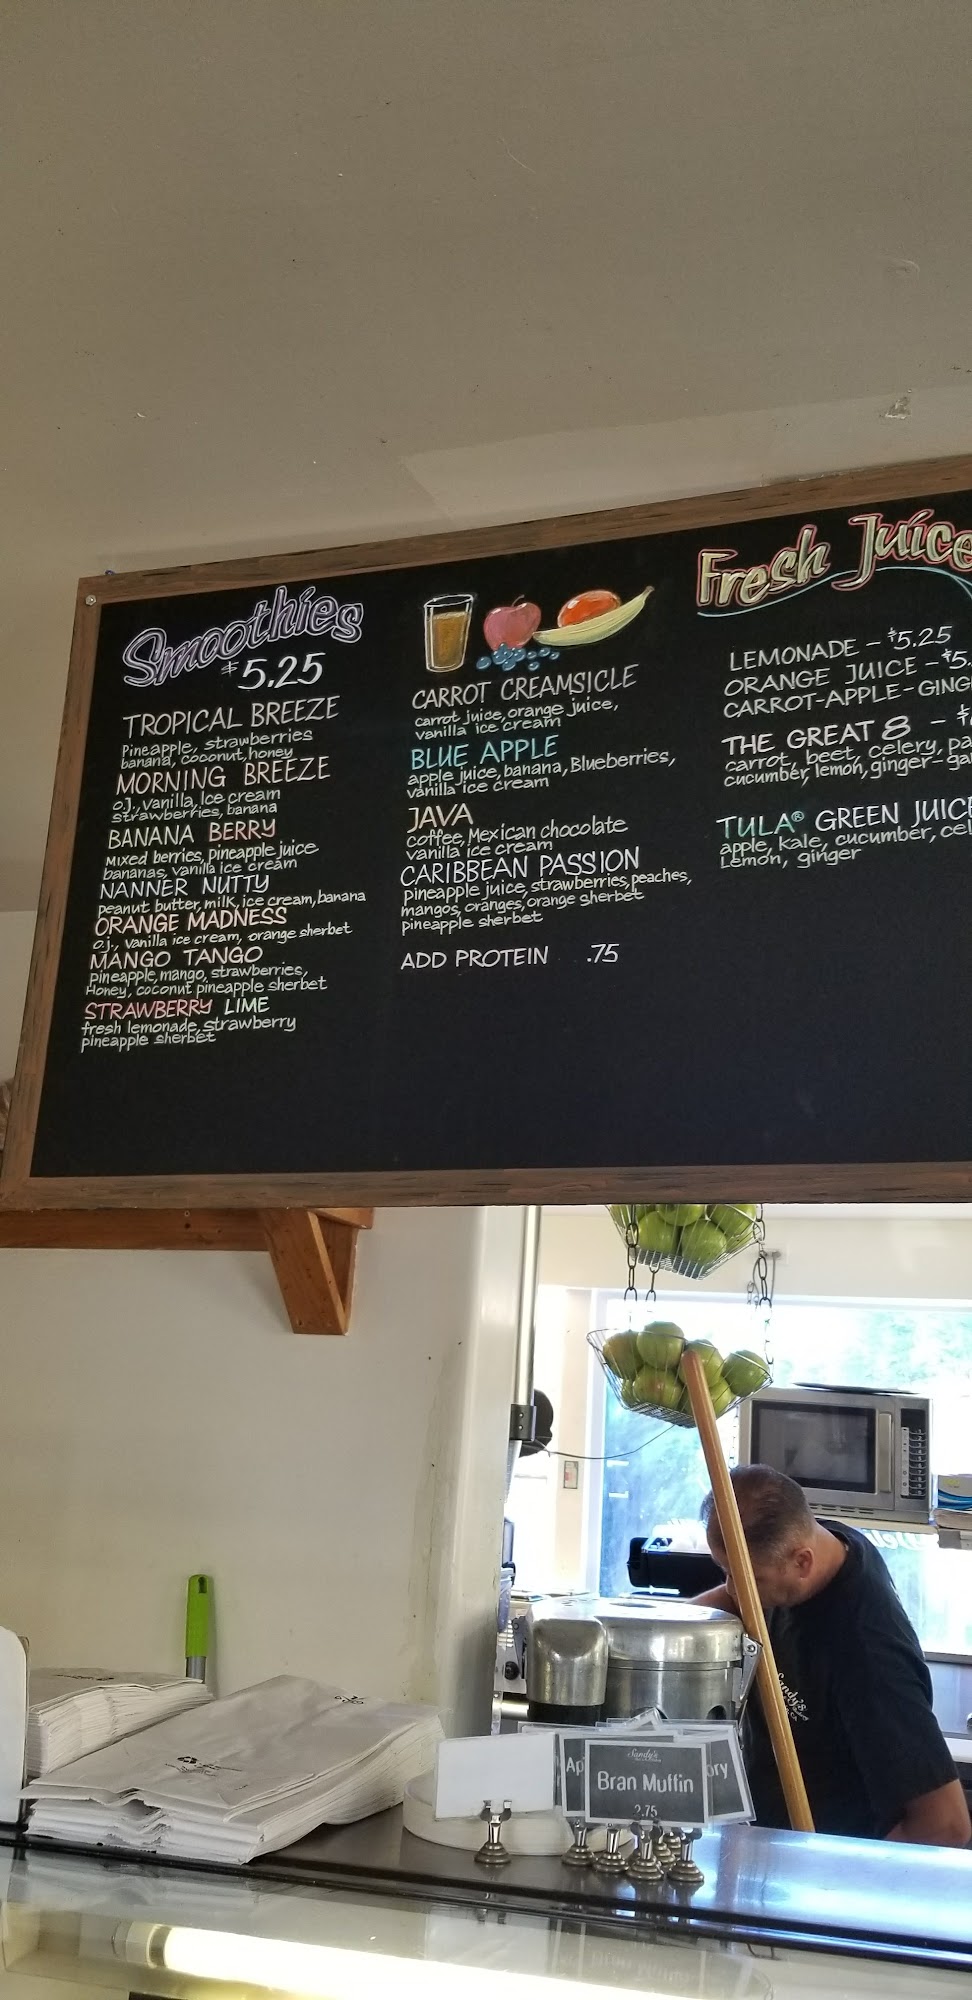 Smoothies
$5.25
TROPICAL BREEZE
Pineapple, strawberries
banana, coconut, honey
MORNING BREEZE
o.j., vanilla, Ice cream
strawberries, banana
BANANA BERRY
Mixed berries, pineapple juice
bananas, vanilla ice cream
NANNER NUTTY
peanut butter, milk, ice cream, banana
ORANGE MADNESS
o.j., vanilla ice cream, orange sherbet
MANGO TANGO
pineapple, mango, strawberries,
Honey, coconut pineapple sherbet
STRAWBERRY LIME
fresh lemonade, strawberry
pineapple sherbet
CARROT CREAMSICLE
carrot juice, orange juice,
vanilla ice cream
BLUE APPLE
apple juice, banana, Blueberries,
vanilla ice cream
JAVA
coffee, Mexican chocolate
vanilla ice cream
CARIBBEAN PASSION
Pineapple juice, strawberries, peaches,
mangos, oranges, orange sherbet
pineapple sherbet
ADD PROTEIN .75
Fresh Juice
LEMONADE - $5.25
ORANGE JUICE - $5.
CARROT-APPLE-GING
THE GREAT 8 - $
carrot, beet, celery, pa
cucumber, lemon, ginger-ga
TULA® GREEN JUICE
apple, kale, cucumber, cel
Lemon, ginger
Sandy's
Ap
Bran Muffin
ory
2.75
Sandy's